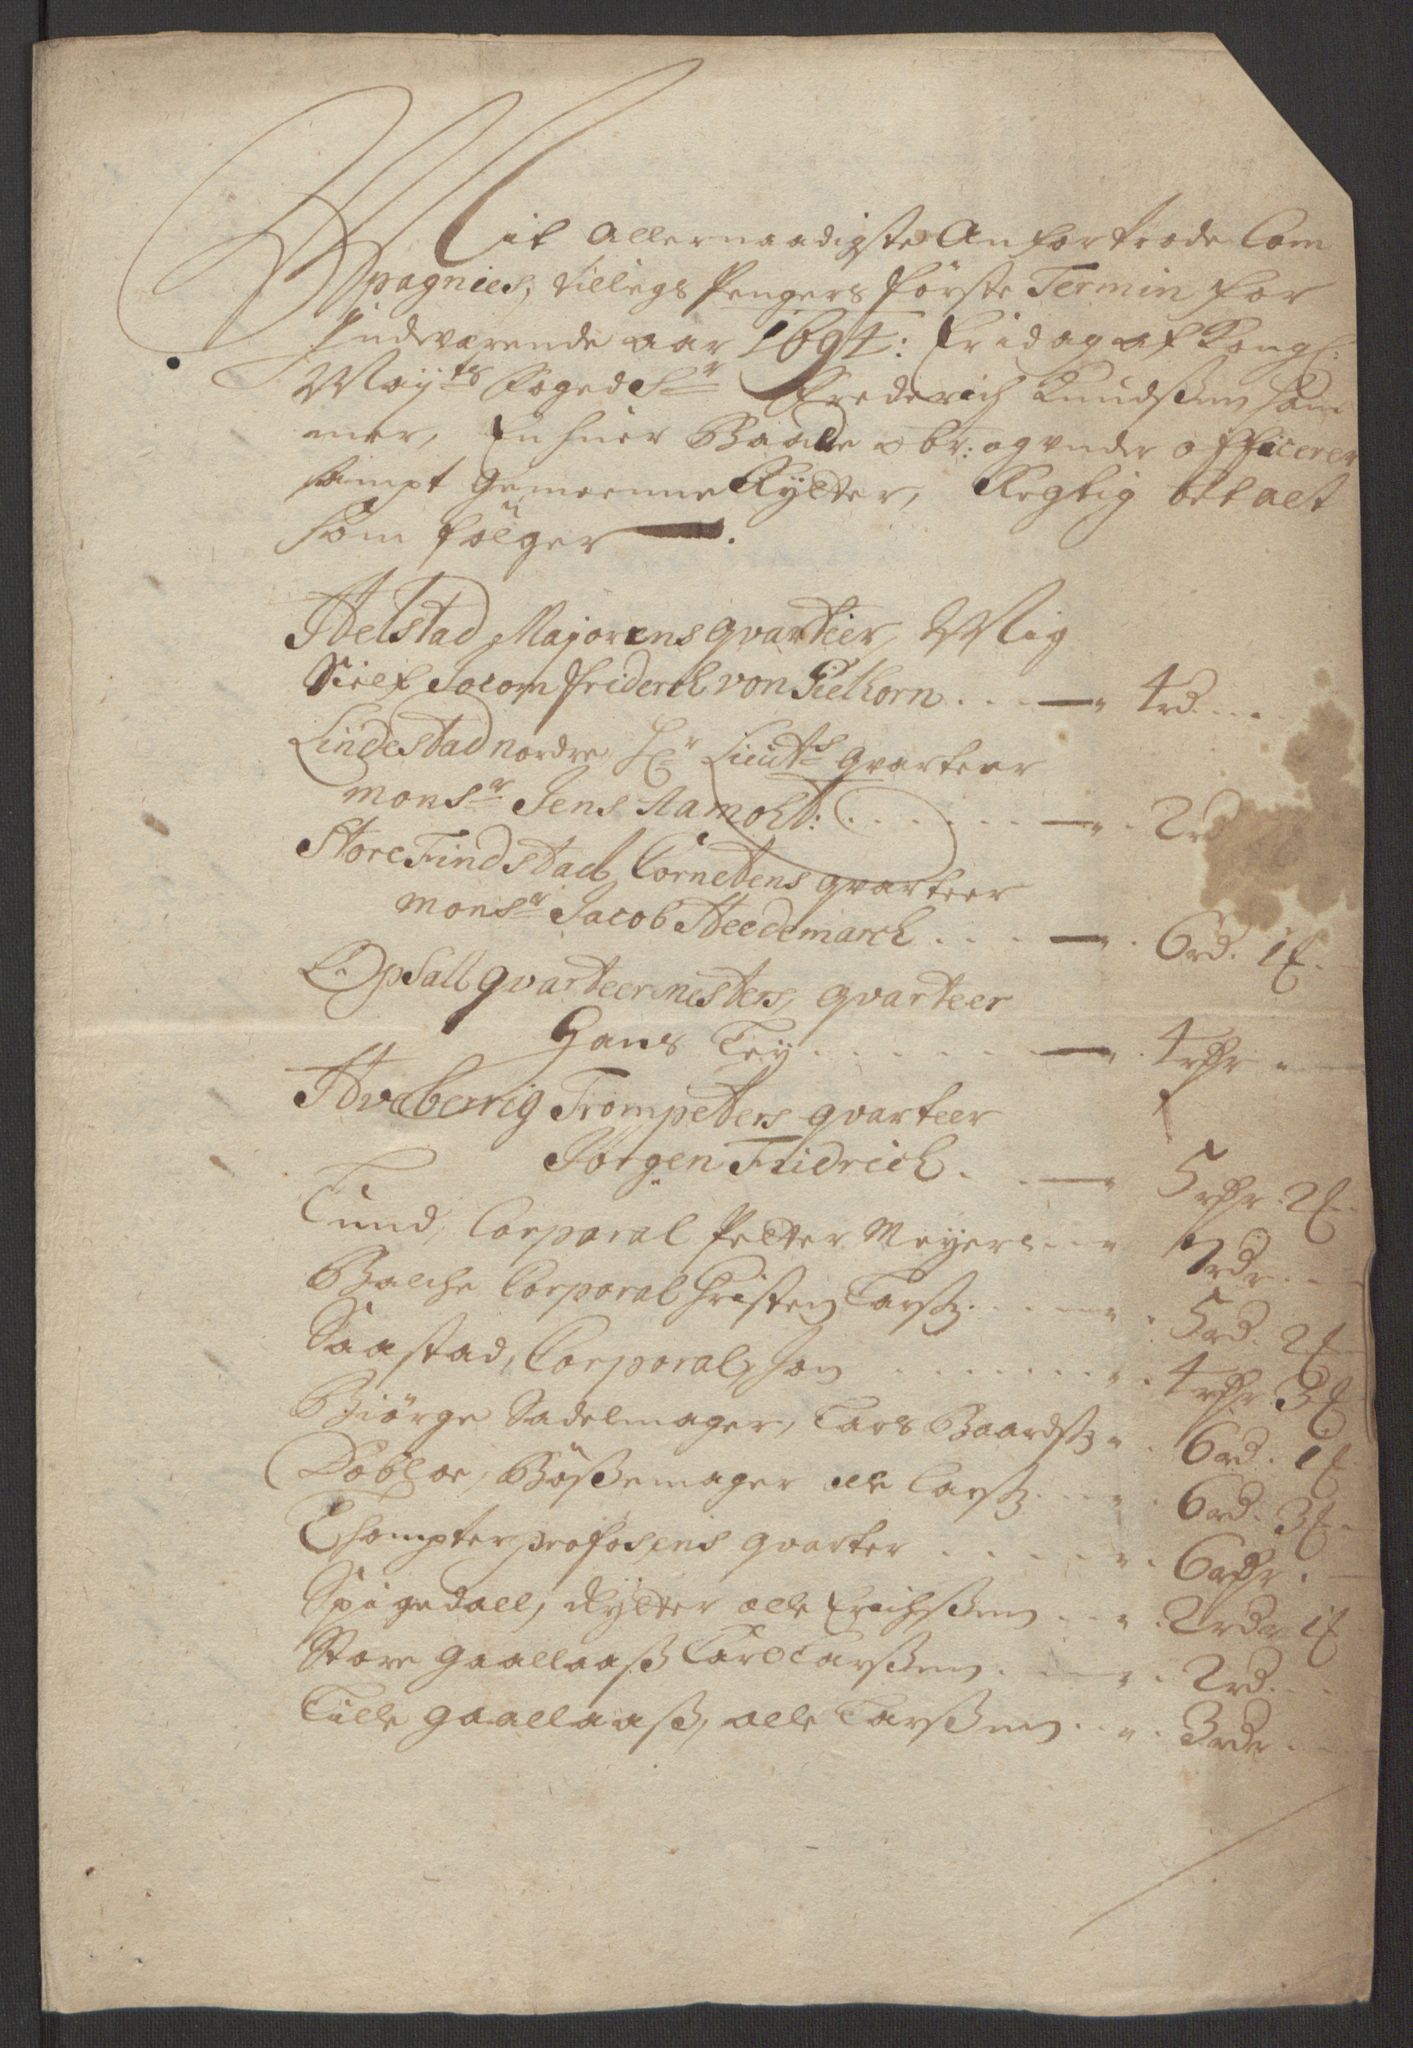 Mit Allernaadigste Anfortrode Com
pagnies, tillegs Pengers förste Termin for
Indværende aar 1694: Er idag af Kongl:
Mayts Foged Sr Frederich Knudssen ham
mer, En huer Baade obr: og under officerer
sampt gemeenne Rytter, Rigtig betalt
som fölger
Helstad Majorens qvarteer, Mig
Sielf Jocom friderch von Gielhorn . . . — 4 rd . . .
Lindestad nordre Hr Lieutts qvarteer
monsr Jens Ramoht: . . . — 2 rd
Store Findstad Cornetens qvarteer
monsr Jacob Heedemarch . . . — 6 rd. 1 £.
Opsall qvarteermesters, qvarteer
Hans Ley . . . — 4 rdr
Hveberrig Trompeters qvarteer
Jörgen Fridrich . — 5 rdr. 2 £.
Lund, Corporal Petter Meyers . . . 7 rdr . .
Balche Corporal Christen Larss: . . . 5 rd. 2 £
Saastad, Corporal, Jon . . . 4 rdr 3 £
Biörge Sadelmager, Lars Baardss: 6 rd. 1 £
Dobloe, Bössemager olle Larss: . . . 6 rd. 3 £.
Thompter profosens qvarter . . . 6 rdr .
Spigedall, Rytter olle Erichssen . . . 2 rdr 1 £
Store gaallaass Carl Larssen . . . 2 rd . .
Lille gaallaass, olle Larssen . . . 3 rdr .